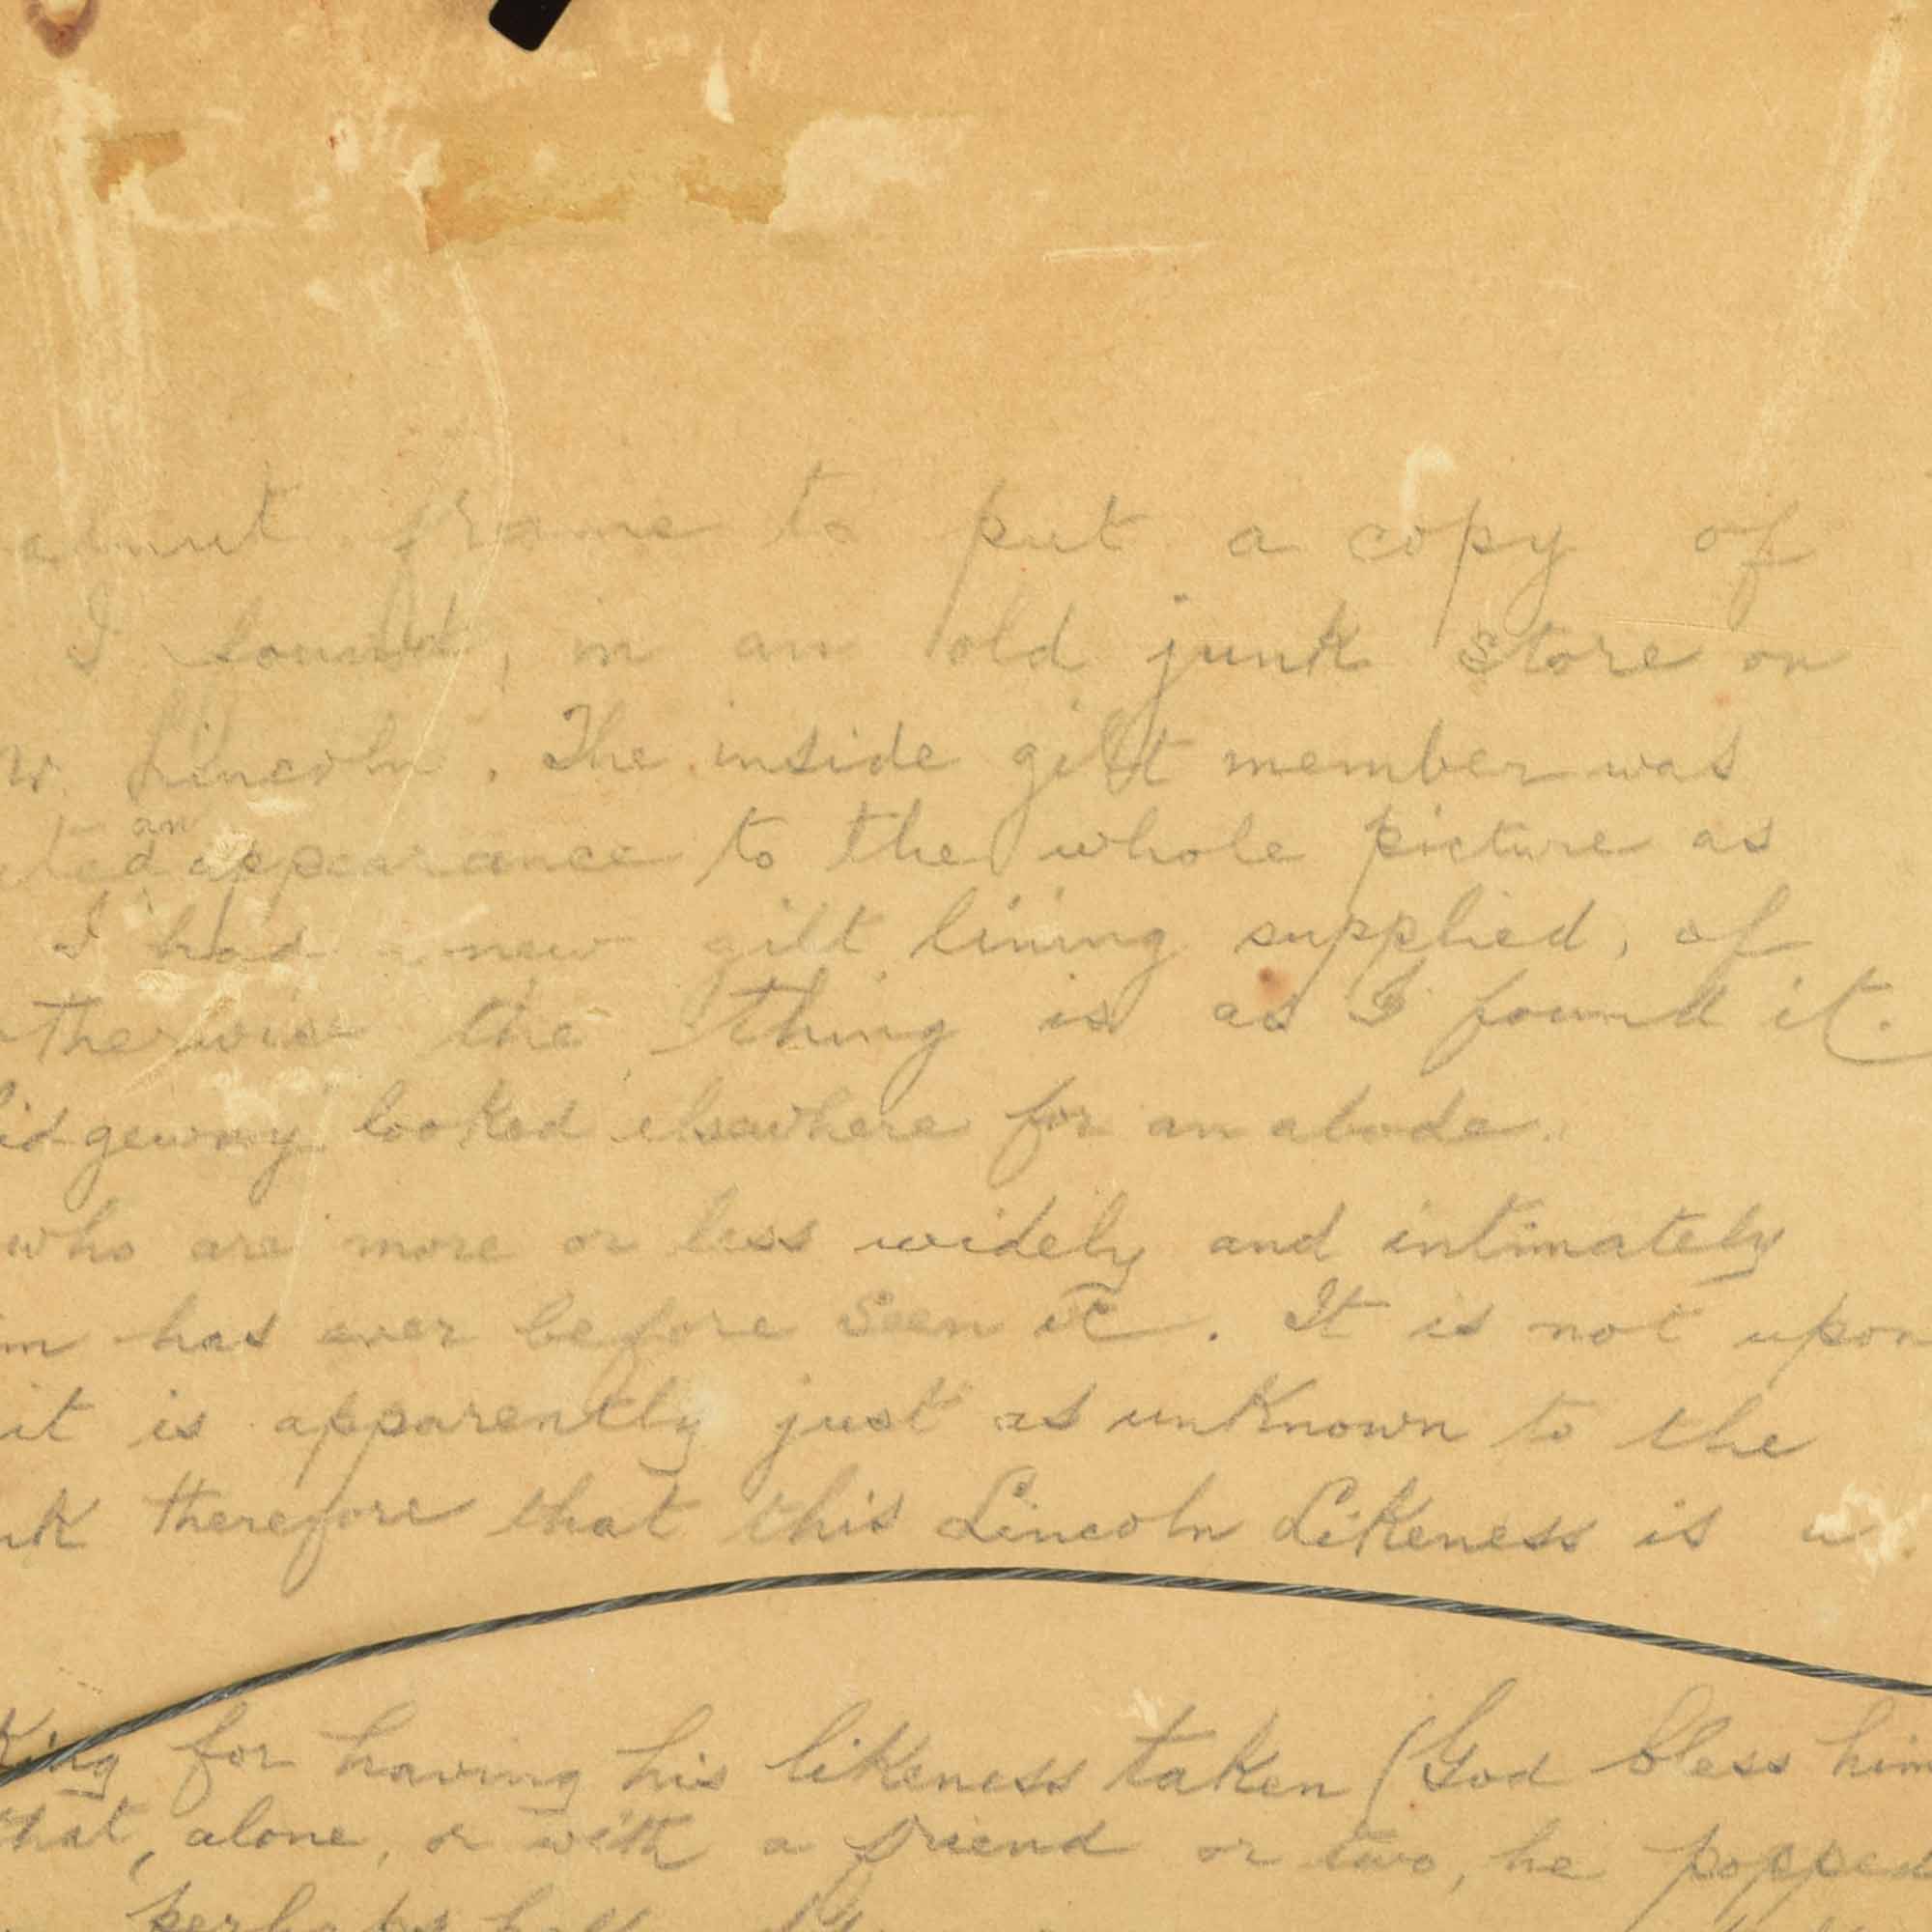 frame to put a copy of
I found, in an old junk store on
W. Lincoln. The inside gilt member was
an
appearance to the whole picture as
I had a new gilt lining supplied, of
otherwise the thing is as I found it.
looked elsewhere for an abode.
who are more or less widely and intimately
has ever before seen it. It is not upon
it is apparently just as unknown to the
therefore that this Lincoln Likeness is
King for having his likeness taken (God bless him
that, alone, or with a friend or two, he popped
perhaps half